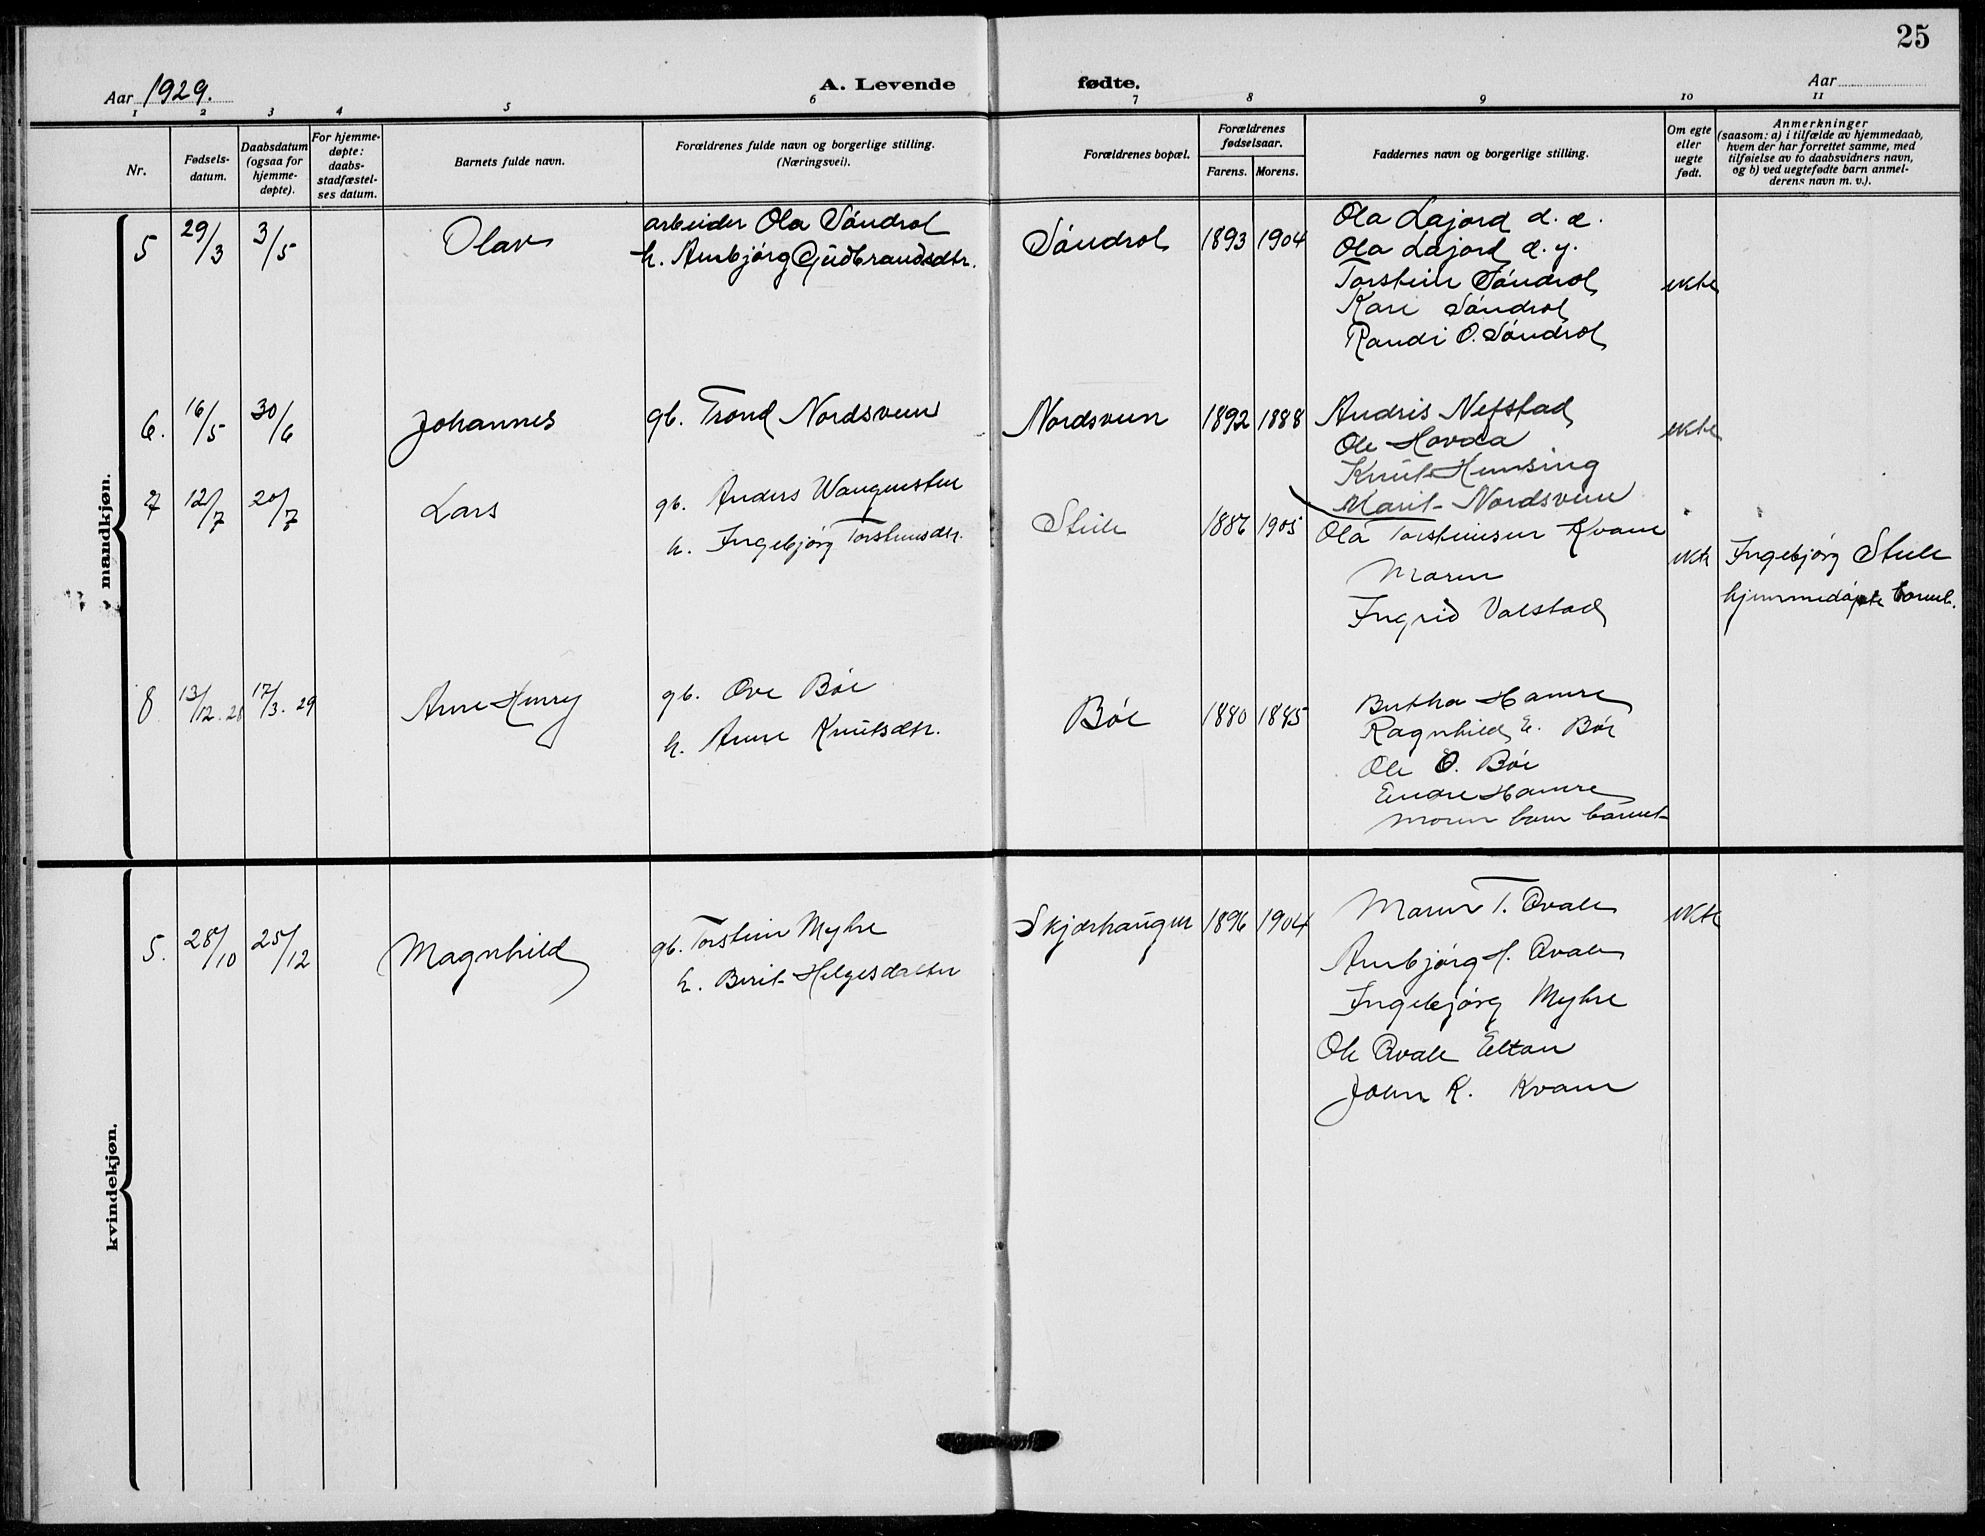 25
Aar 1929.
A. Levende fødte.
Aar
1 2 3 4 5 6 7 8 9 10 11
Nr.
Fødsels-
datum.
Daabsdatum
(ogsaa for
hjemme-
døpte).
For hjemme-
døpte:
daabs-
stadfæstel-
ses datum.
Barnets fulde navn.
Forældrenes fulde navn og borgerlige stilling.
(Næringsvei).
Forældrenes bopæl.
Forældrenes
fødselsaar.
Farens. Morens.
Faddernes navn og borgerlige stilling.
Om egte
eller
uegte
født.
Anmerkninger
(saasom: a) i tilfælde av hjemmedaab,
hvem der har forrettet samme, med
tilføielse av to daabsvidners navn,
og b) ved uegtefødte barn anmel-
derens navn m. v.).
mandkjøn.
5 29/3 3/5 Olav
arbeider Ola Søndrol
h. Anbjørg Gudbrandsdtr.
Søndrol 1893 1904
Ola Lajord d. e.
Ola Lajord d. y.
Torstein Søndrol
Kari Søndrol
Randi O. Søndrol
ekte
6. 16/5 30/6 Johannes
gb. Trond Nordsveen
Nordsveen 1892 1888
Andris Nefstad
Ole Hovda
Knut Hemsing
Marit Nordsveen
ekte
7 12/7 20/7 Lars
gb. Anders Wangensten
h. Ingebjørg Torsteinsdtr.
Stein 1886 1905
Ola Torsteinsen Kvam
Moren
Ingrid Valstad
ekte
Ingebjørg Steile
hjemmedøpte barnet.
8 13/12.28 17/3.29 Arne Henry
gb. Ove Bøe
h. Anne Knutsdtr.
Bøe 1880 1885
Bertha Hamre
Ragnhild E. Bøe
Ole O. Bøe
Endre Hamre
Moren bar barnet
kvindekjøn.
5. 28/10 25/12 Magnhild
gb. Torstein Myhre
h. Berit Helgesdatter
Skjærhaugen 1896 1904
Maren T. Qvale
Anbjørg H. Qvale
Ingebjørg Myhre
Ole Qvale Eltun
John K. Kvam
ekte